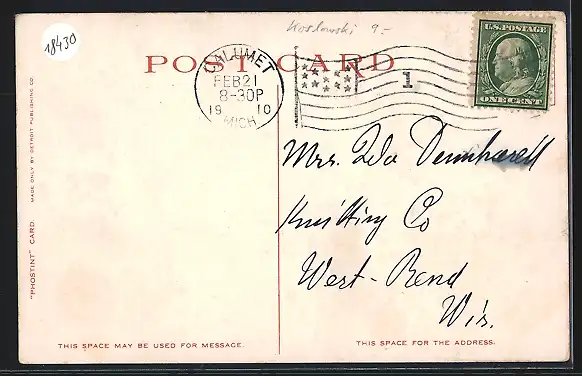 18430
Koslowski 9.-
POST CARD
CALUMET
FEB 21
8-30P
1910
MICH
1
U.S. POSTAGE
ONE CENT
MADE ONLY BY DETROIT PUBLISHING CO
"PHOSTINT" CARD.
Mrs. Ida
Knitting Co
West-Bend
Wis.
THIS SPACE MAY BE USED FOR MESSAGE.
THIS SPACE FOR THE ADDRESS.